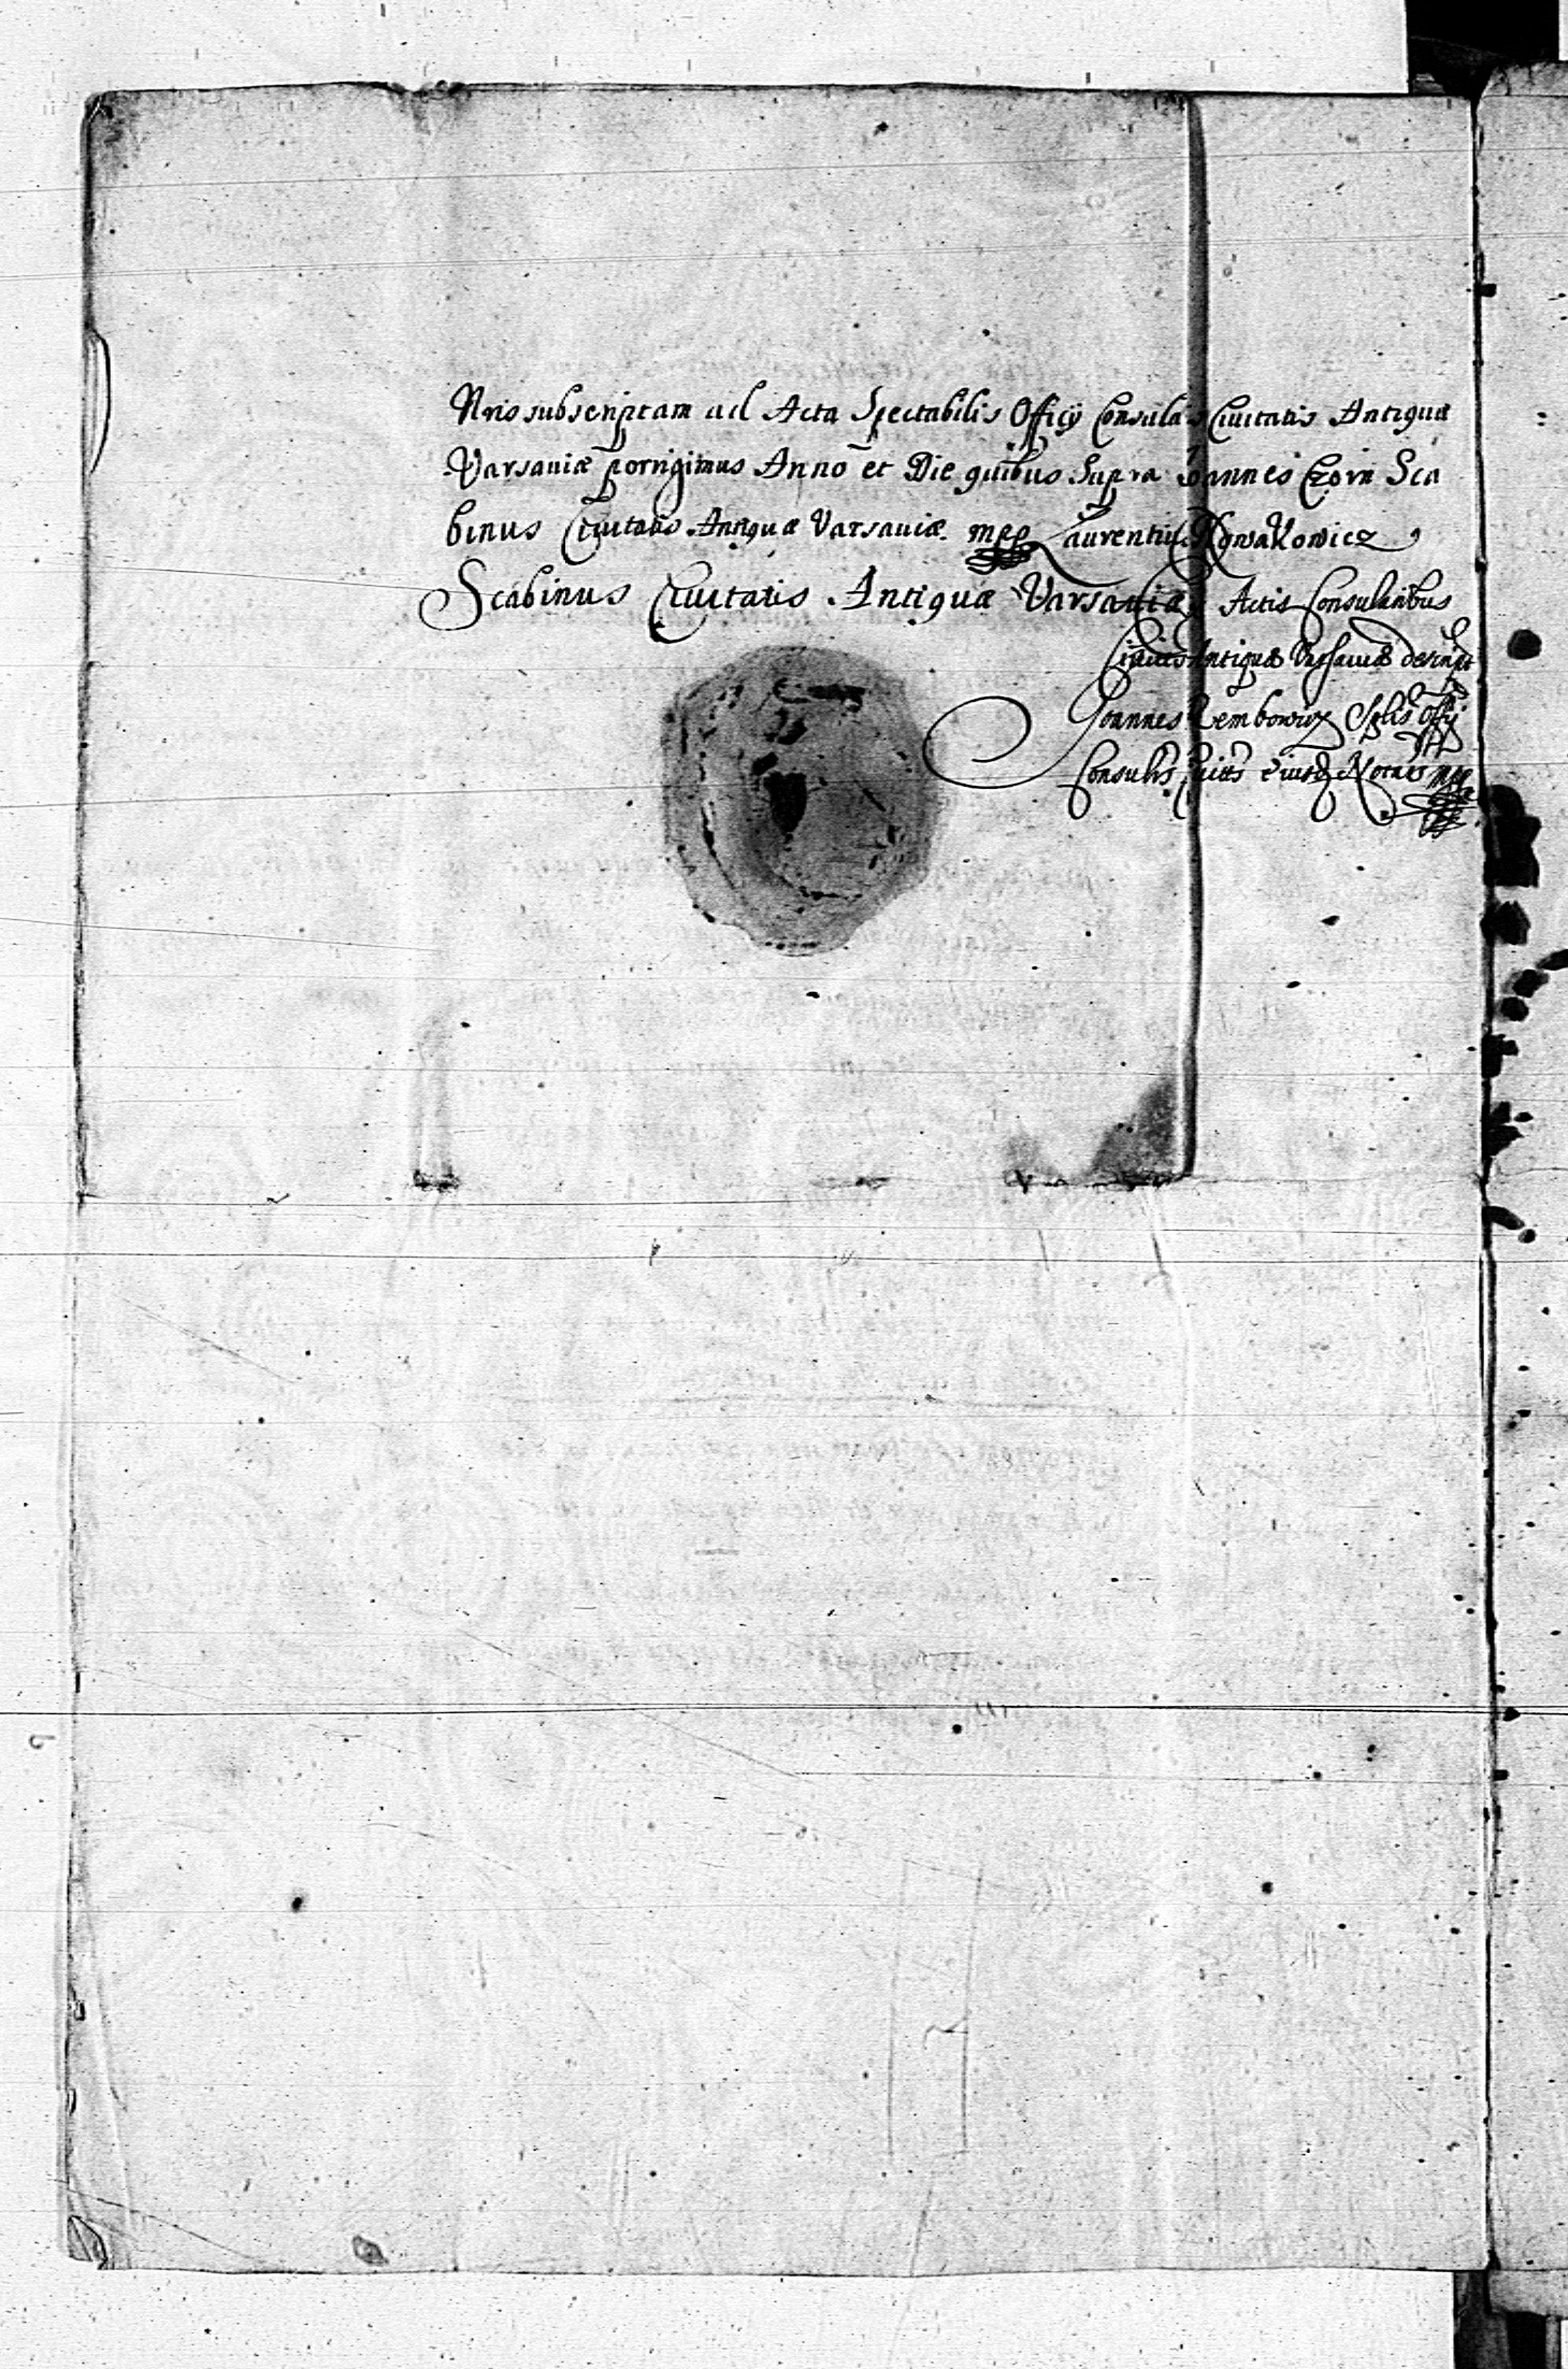 Nris subscriptam ad Acta Spectabilis Officij Consularis Civitatis Antiquæ
Varsaviæ porrigimus Anno et Die quibus Supra Joannes Czorn Sca
binus Civitatis Antiquæ Varsaviæ mpp Laurentius Nowakowicz
Scabinus Civitatis Antiquæ Varsaviæ Actis Consularibus
Antiquæ Varsaviæ
Joannes Offij
Consulis Notarius mpp